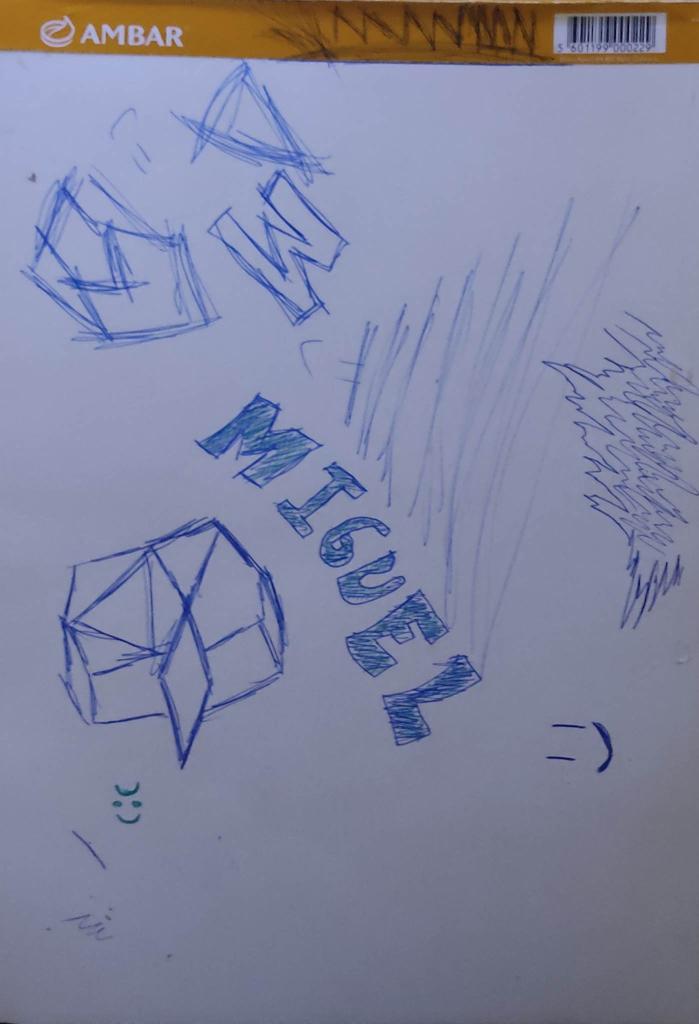 AMBAR
5 601199 000229
M
MIGUEL